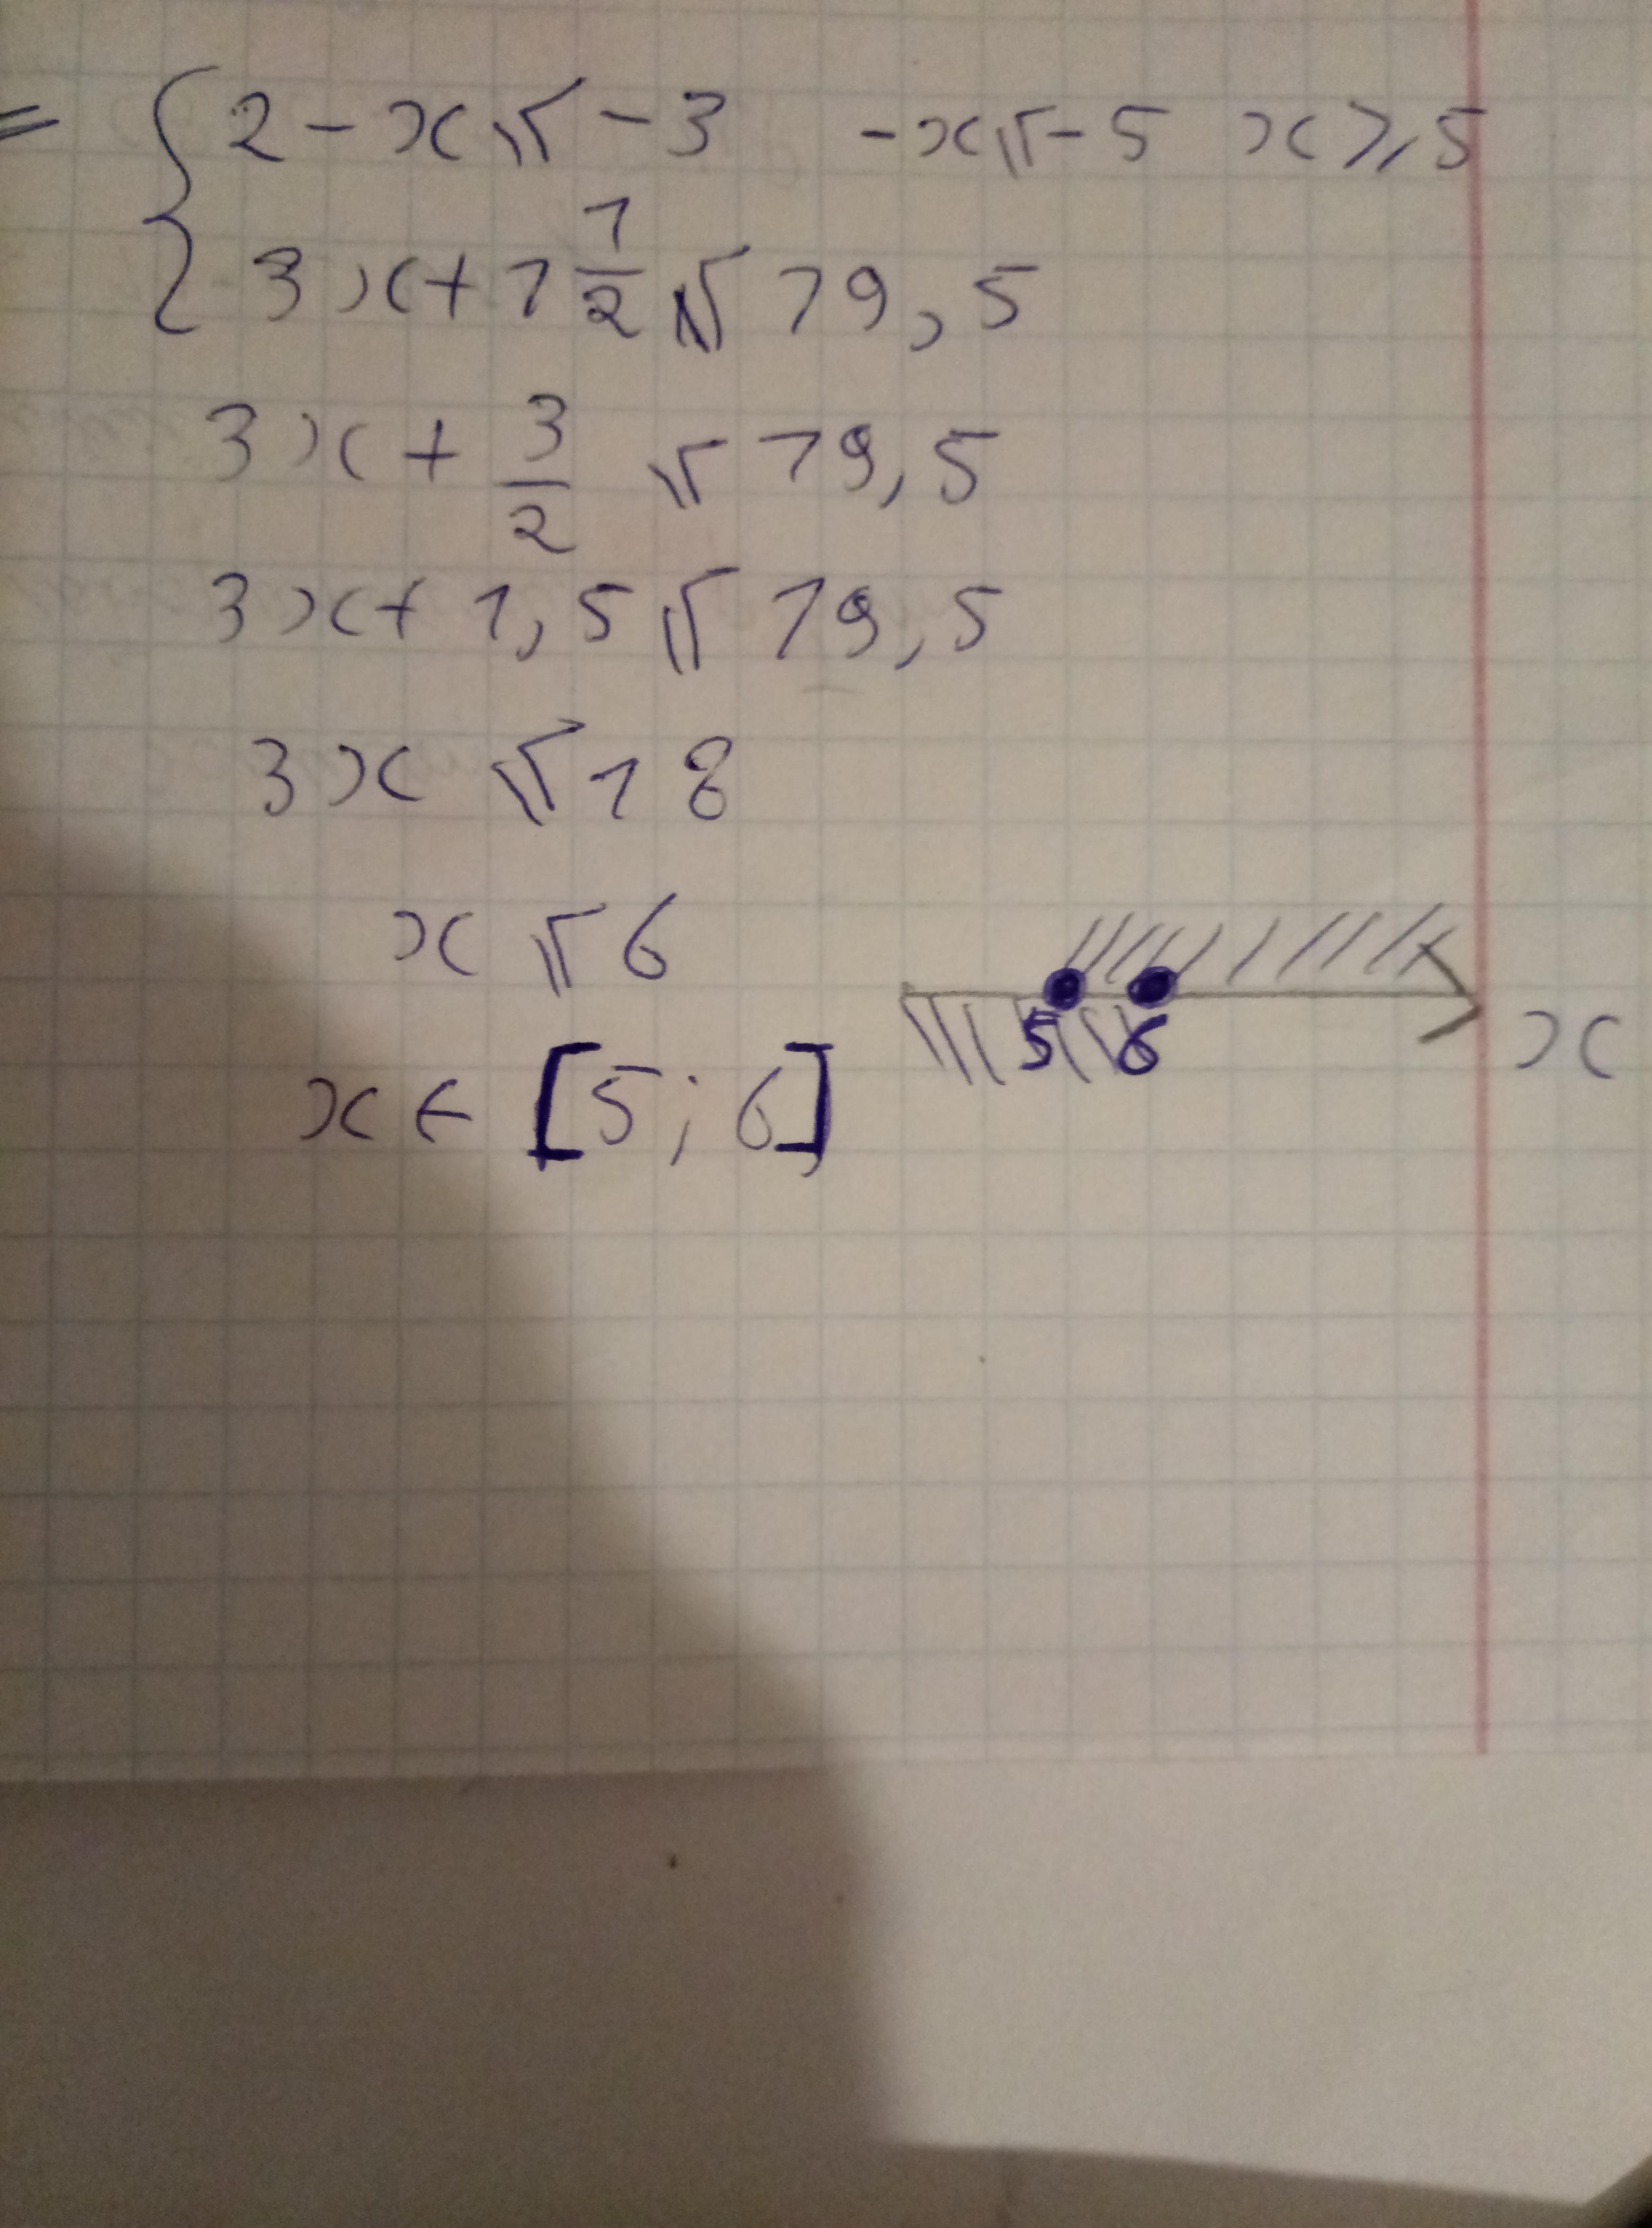 = { 2 - x ≤ -3 -x ≤ -5 x ≥ 5
3x + 1 1/2 ≤ 19,5
3x + 3/2 ≤ 19,5
3x + 1,5 ≤ 19,5
3x ≤ 18
x ≤ 6
5 6 x
x ∈ [5; 6]